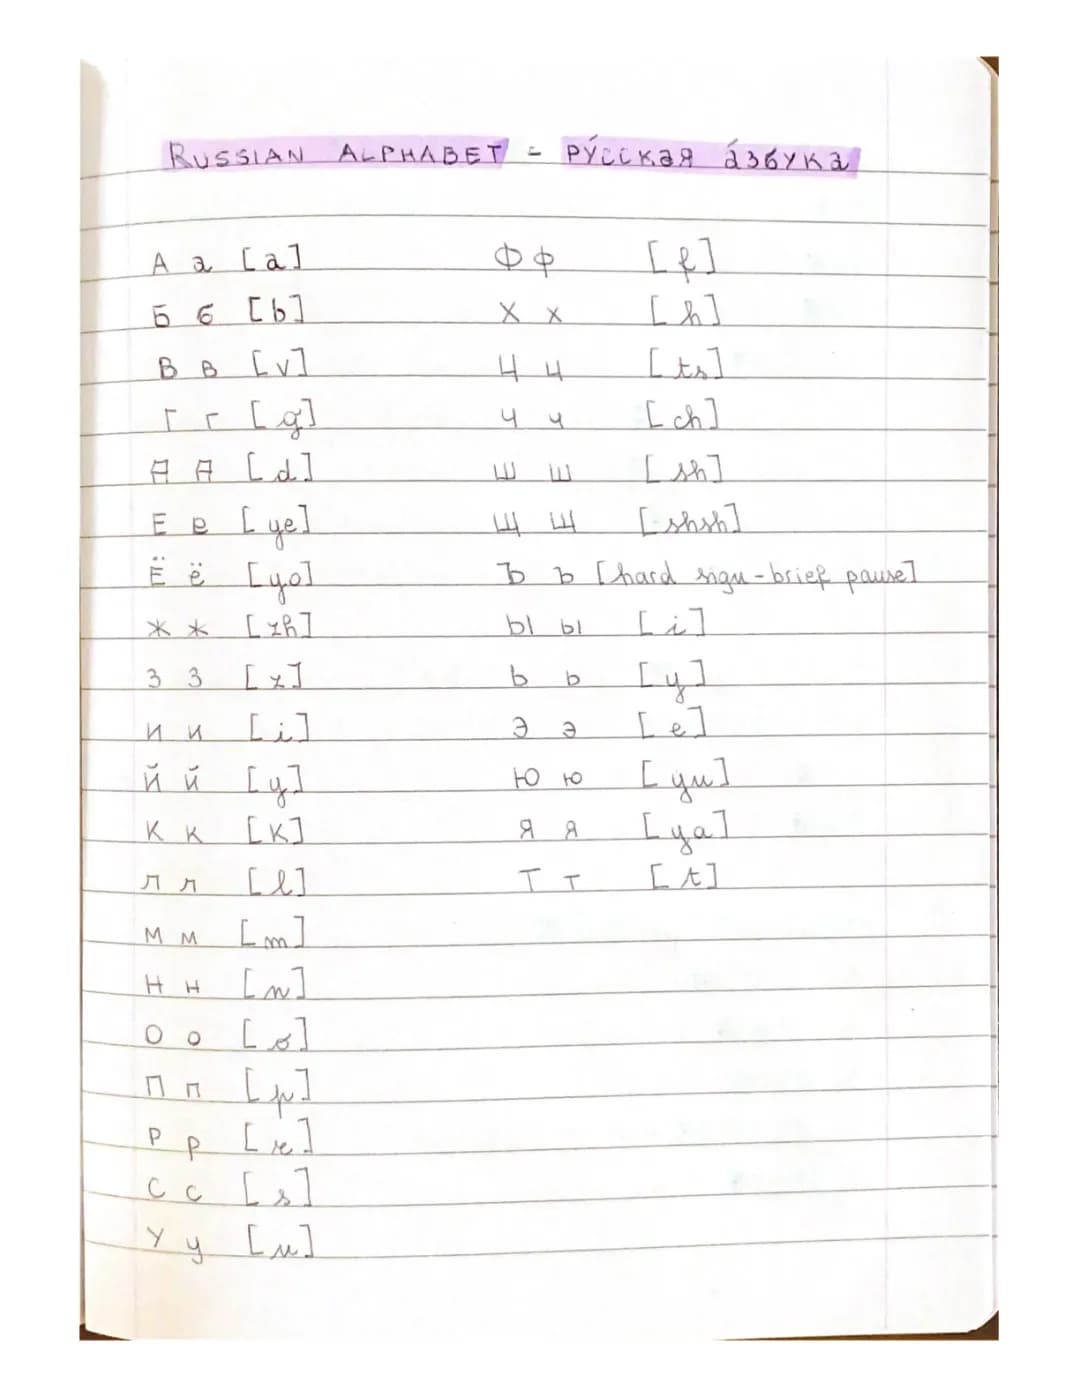 RUSSIAN ALPHABET - РУ́ССКАЯ а́збУКа
А а [a]
Б б [b]
В в [v]
Г г [g]
Д Д [d]
Е е [ye]
Ё ё [yo]
Ж ж [zh]
З з [z]
И и [i]
Й й [y]
К к [k]
Л л [l]
М м [m]
Н н [n]
О о [o]
П п [p]
Р р [r]
С с [s]
У у [u]
Ф ф [f]
Х х [h]
Ц ц [ts]
Ч ч [ch]
Ш ш [sh]
Щ щ [shsh]
Ъ ъ [hard sign-brief pause]
Ы ы [i]
Ь ь [y]
Э э [e]
Ю ю [yu]
Я я [ya]
Т т [t]